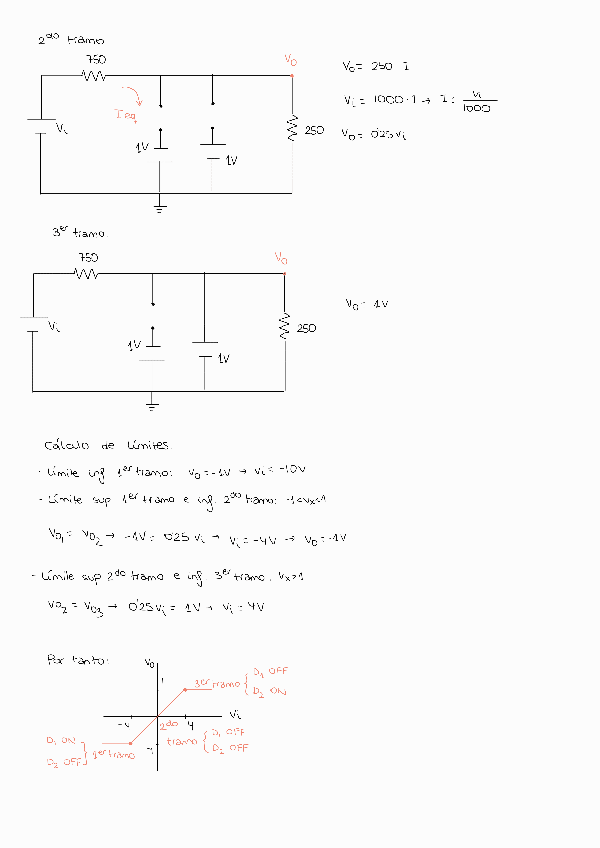 2do tramo
750
Vo
Ieq
Vi
1V
1V
250
Vo = 250 · I
Vi = 1000 · I → I = Vi/1000
Vo = 0'25 Vi
3er tramo.
750
Vo
Vi
1V
1V
250
Vo = 1V
Cálculo de límites.
- Límite inf 1er tramo: Vo = -1V → Vi = -10V
- Límite sup 1er tramo e inf. 2do tramo: -1<Vx<1
Vo1 = Vo2 → -1V = 0'25 Vi → Vi = -4V → Vo = -1V
- Límite sup 2do tramo e inf. 3er tramo. Vx>1
Vo2 = Vo3 → 0'25 Vi = 1V → Vi = 4V
Por tanto:
Vo
1
3er tramo { D1 OFF
D2 ON
-4
4
Vi
2do
tramo { D1 OFF
D2 OFF
D1 ON
D2 OFF } 1er tramo